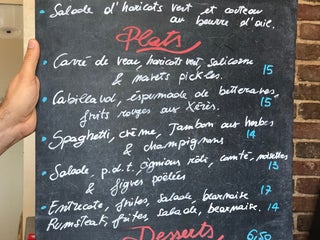 • Salade d'haricots vert et couteau
au beurre d'ail.
Plats
• Carré de veau, haricots vert, salicorne
& navets pickles. 15
• Cabillaud, espumade de betteraves,
fruits rouges aux Xérès. 15
• Spaghetti, crème, Jambon aux herbes
& champignons 14
• Salade, p.d.t, rôti, comté, noisettes
& figues poêlées 13
• Entrecote, frites, salade, bearnaise 17
Rumsteak, frites, salade, bearnaise. 14
Desserts
6,50